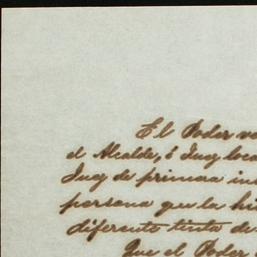 El Poder ve
el Alcalde, ó Juez loca
Juez de primera in
persona que la hi
diferente tinta de
Que el Poder